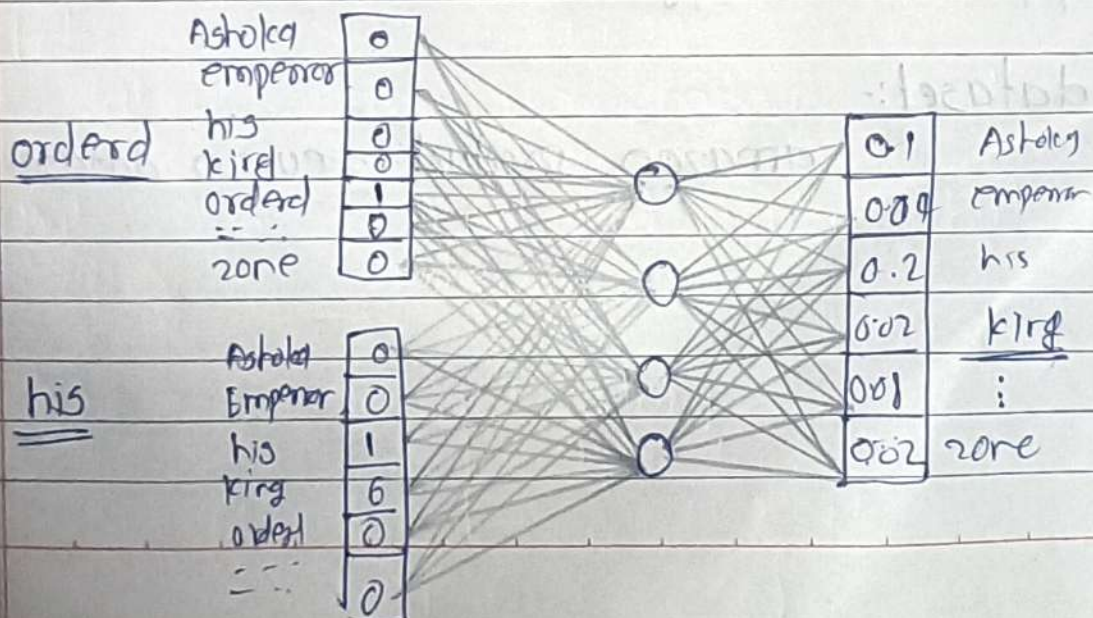 dataset:-
Ashoka 0
emperor 0
his 0
orderd
king 0
orderd 1
0
zone 0
Ashoka 0
Emperor 0
his
his 1
king 6
orderd 0
0
0.1 Ashoka
0.09 emperor
0.2 his
0.02 king
0.01 :
0.02 zone